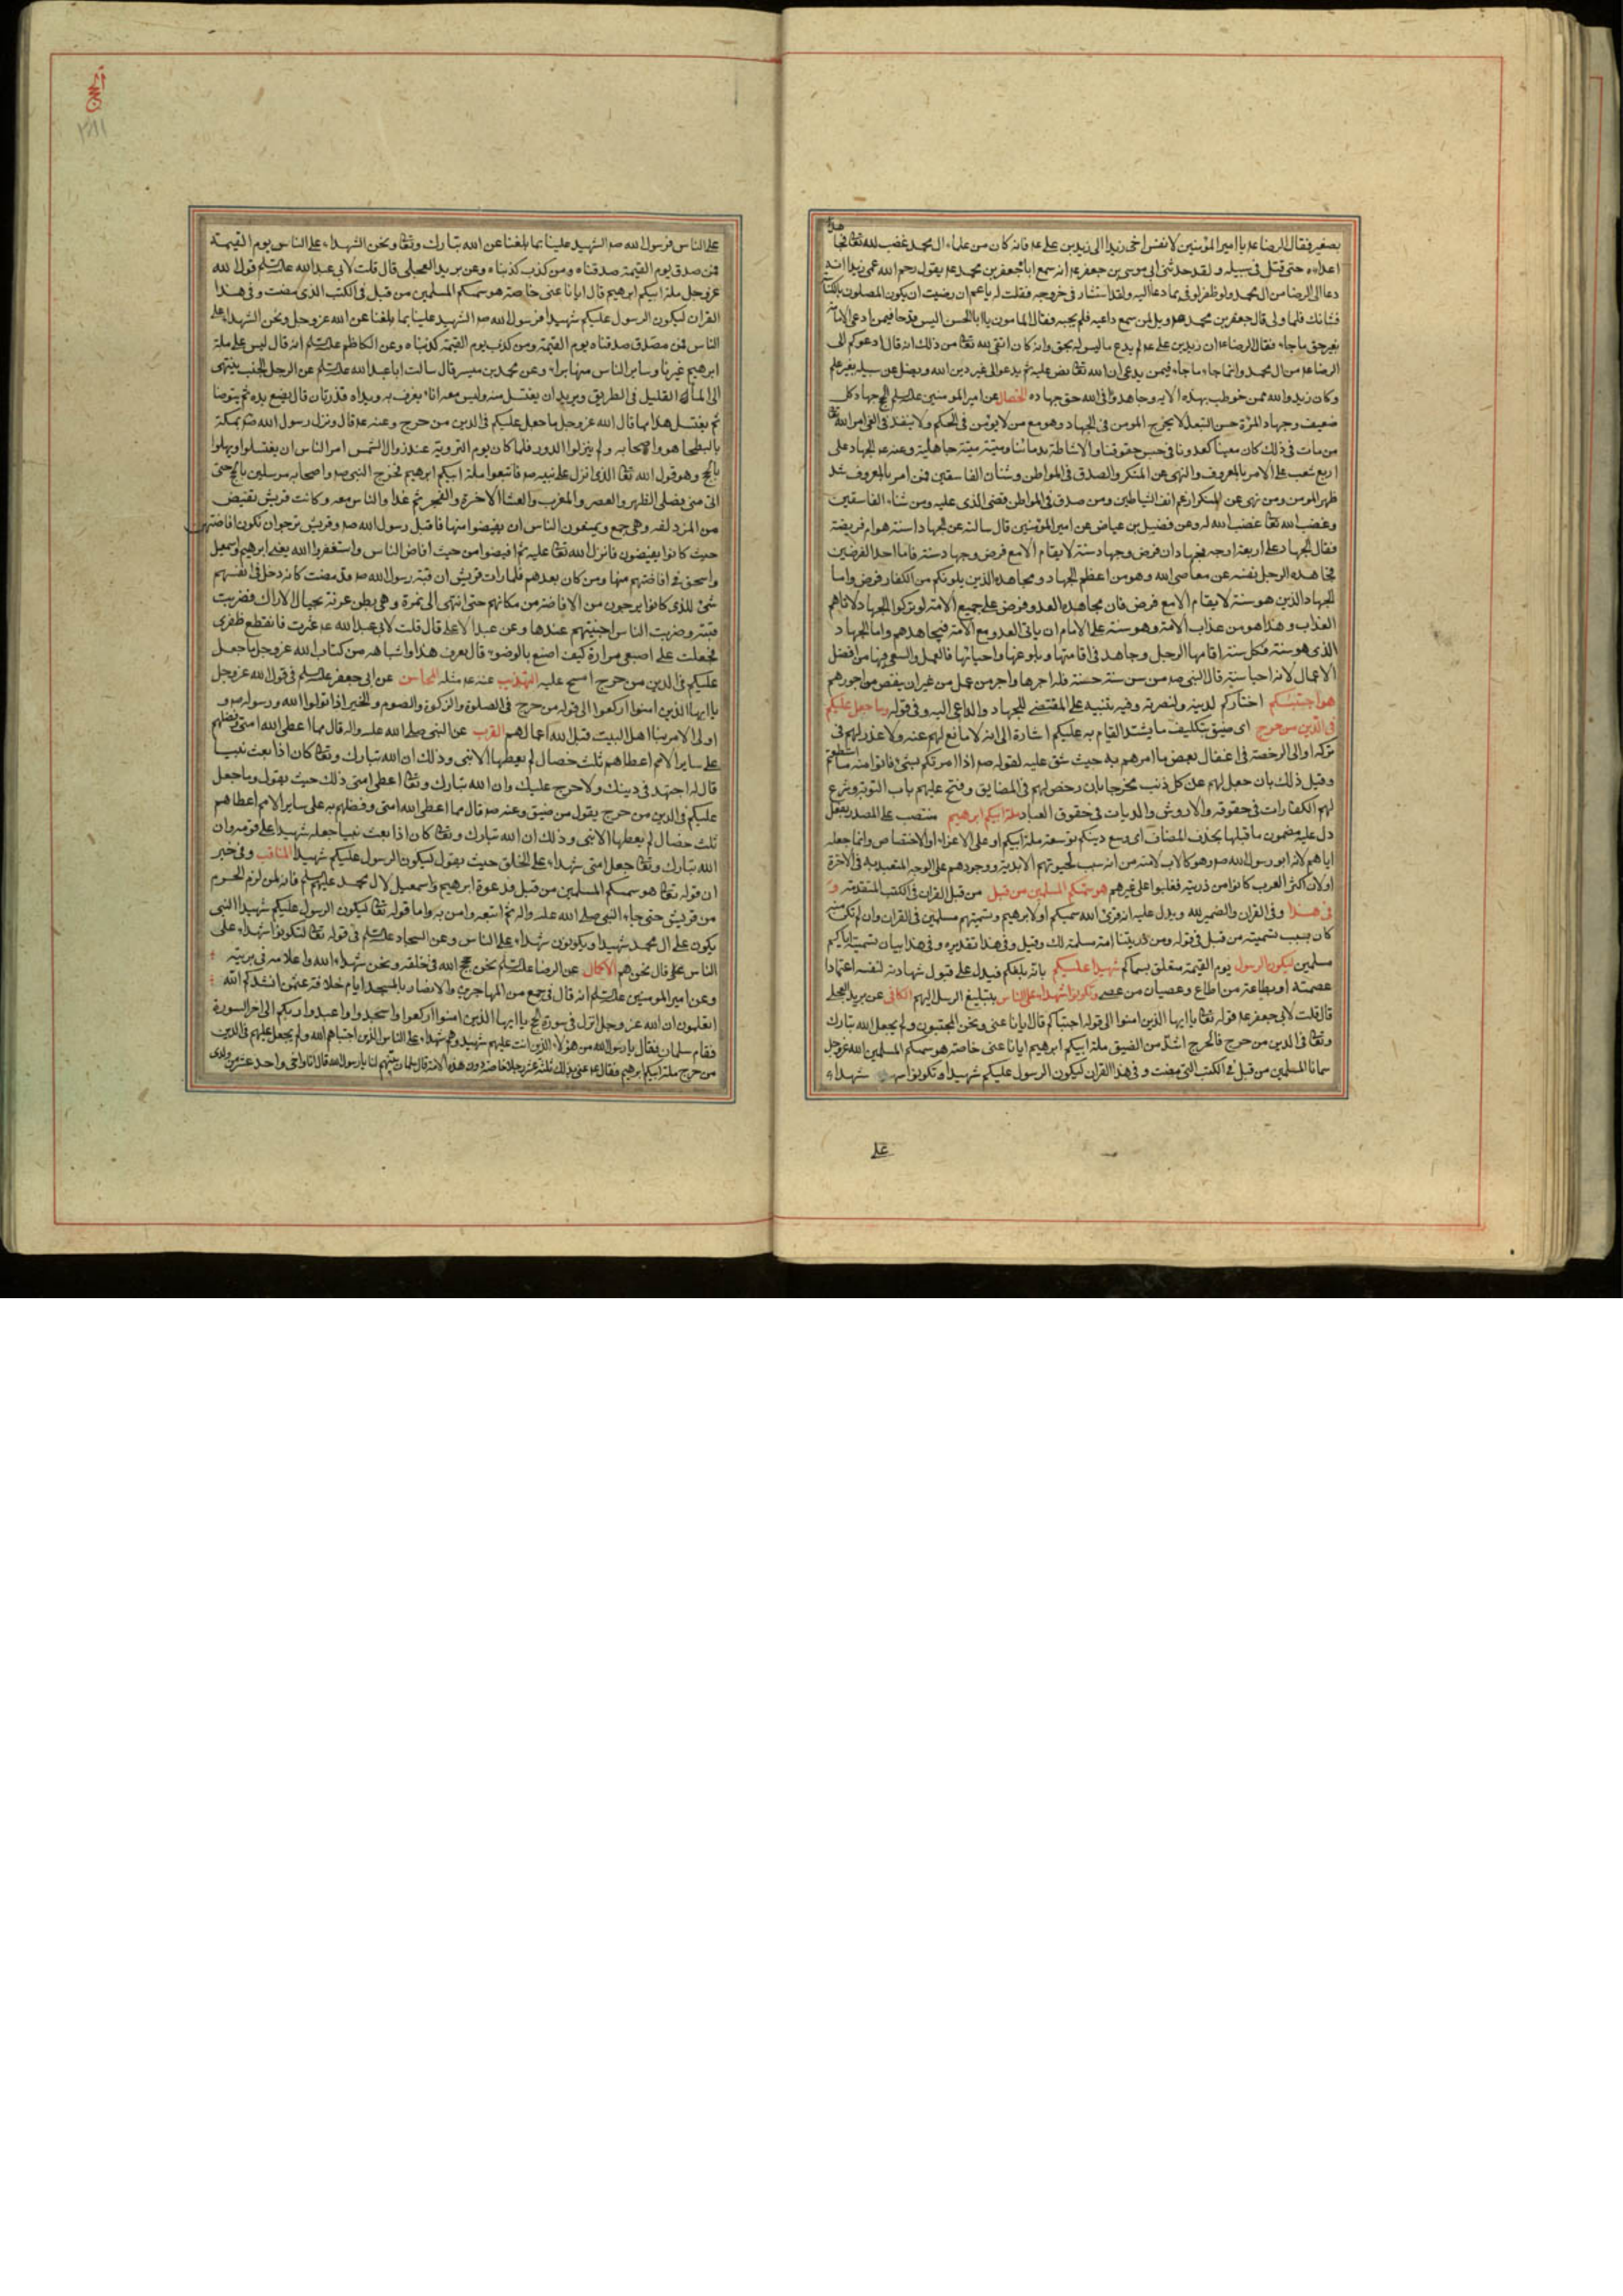 بصغير فقال الرضا عم يا امير المؤمنين لا تقس اخى زيدا الى زيد بن على عم فانه كان من علماء ال محمد غضب لله تعا فجاهد
اعداءه حتى قتل فى سبيله ولقد حدثنى ابى موسى بن جعفر عم انه سمع اباه جعفر بن محمد عم يقول رحم الله عمى زيدا انه
دعا الى الرضا من ال محمد ولو ظفر لوفى بما دعا اليه ولقد استشار فى خروجه فقلت له يا عم ان رضيت ان يكون المصلوب بالكناسة
فشانك فلما ولى قال جعفر بن محمد عم ويل لمن سمع داعيه فلم يجبه وفقال المامون يا ابا الحسن اليس قد جا فيمن ادعى الامامة
بغير حق ما جاء فقال الرضا عم ان زيد بن على عم لم يدع ما ليس له بحق وانه كان اتقى لله تعا من ذلك انه قال ادعوكم الى
الرضا عم من ال محمد وانما جاء ما جاء فيمن يدعى ان الله تعا نص عليه ثم يدعو الى غير دين الله ويضل عن سبيله بغير علم
وكان زيد والله ممن خوطب بهذه الايه وجاهدوا فى الله حق جهاده الخصال عن امير المومنين علیه السلم الحج جهاد كل
ضعيف وجهاد المرءة حسن التبعل لا يخرج المومن فى الجهاد وهو مع من لا يؤمن فى الحكم ولا ينفذ فى الفى امر الله تعا
من مات فى ذلك كان معينا لعدونا فى حبس حقوقنا والاشاطة بدمائنا وميتته ميتة جاهلية وعنه عم الجهاد على
اربع شعب على الامر بالمعروف والنهى عن المنكر والصدق فى المواطن وشنان الفاسقين فمن امر بالمعروف شد
ظهر المومن ومن نهى عن المنكر ارغم انف الشياطين ومن صدق فى المواطن قضى الذى عليه ومن شناء الفاسقين
وغضب لله تعا غضب الله له وعن فضيل بن عياض عن امير المؤمنين قال سالته عن الجهاد اسنة هو ام فريضة
فقال الجهاد على اربعة اوجه فجهادان فرض وجهاد سنة لا يقام الا مع فرض وجهاد سنة فاما احد الفرضين
فمجاهدة الرجل نفسه عن معاصى الله وهو من اعظم الجهاد ومجاهدة الذين يلونكم من الكفار فرض واما
الجهاد الذين هو سنة لا يقام الا مع فرض فان مجاهدة العدو فرض على جميع الامة لو تركوا الجهاد لاتاهم
العذاب وهذا هو من عذاب الامة وهو سنة على الامام ان ياتى العدو مع الامة فيجاهدهم واما الجهاد
الذى هو سنة فكل سنة اقامها الرجل وجاهد فى اقامتها وبلوغها واحيائها فالعمل والسعى فيها من افضل
الاعمال لانه احيا سنة قال النبى صم من سن سنة حسنة فله اجرها واجر من عمل من غير ان ينقص من اجورهم
هو اجتبيكم اختاركم لدينه ولنصرته وفيه تنبيه على المقتضى للجهاد والداعى اليه وفى قوله وما جعل عليكم
فى الدين من حرج اى ضيق بتكليف ما يشتد القيام به عليكم اشارة الى انه لا مانع لهم عنه ولا عذر لهم فى
تركه او الى الرخصة فى اغفال بعض ما امرهم به حيث شق عليه لقوله صم اذا امرتكم بشىء فاتوا منه ما استطعتم
وقيل ذلك بان جعل لهم عن كل ذنب مخرجا بان رخص لهم فى المضايق وفتح عليهم باب التوبة وشرع
لهم الكفارات فى حقوقه والاروش والديات فى حقوق العباد ملة ابيكم ابرهيم منتصب على المصدر بفعل
دل عليه مضمون ما قبلها بحذف المضاف اى وسع دينكم توسعة ملة ابيكم او على الاغراء او الاختصاص وانما جعله
اباهم لانه ابو رسول الله صم وهو كالاب لامته من انه سبب لحيوتهم الابدية ووجودهم على الوجه المعتد به فى الاخرة
او لان اكثر العرب كانوا من ذريته فغلبوا على غيرهم هو سميكم المسلمين من قبل من قبل القران فى الكتب المتقدمة و
فى هذا وفى القران والضمير لله ويدل عليه انه قرئ الله سميكم او لابرهيم وتسميتهم مسلمين فى القران وان لم تكن منه
كان بسبب تسميته من قبل فى قوله ومن ذريتنا امة مسلمة لك وقيل وفى هذا تقديره وفى هذا بيان تسميته اياكم
مسلمين ليكون الرسول يوم القيمة متعلق بسماكم شهيدا عليكم بانه بلغكم فيدل على قبول شهادته لنفسه اعتمادا
عصمته او بطاعة من اطاع وعصيان من عصى وتكونوا شهداء على الناس بتبليغ الرسل اليهم الكافى عن بريد العجلى
قال قلت لابى جعفر عم قوله تعا يا ايها الذين امنوا الى قوله اجتباكم قال ايانا عنى ونحن المجتبون ولم يجعل الله تبارك
وتعا فى الدين من حرج فالحرج اشد من الضيق ملة ابيكم ابرهيم ايانا عنى خاصة هو سميكم المسلمين الله عز وجل
سمانا المسلمين من قبل فى الكتب التى مضت وفى هذا القران ليكون الرسول عليكم شهيدا وتكونوا شهداء
على
الحج
٢٨١
على الناس فرسول الله صم الشهيد علينا بما بلغنا عن الله تبارك وتعا ونحن الشهداء على الناس يوم القيمة
فمن صدق يوم القيمة صدقناه ومن كذب كذبناه وعن بريد العجلى قال قلت لابى عبد الله علیه السلم قول الله
عز وجل ملة ابيكم ابرهيم قال ايانا عنى خاصة هو سميكم المسلمين من قبل فى الكتب الذى مضت وفى هذا
القران ليكون الرسول عليكم شهيدا فرسول الله صم الشهيد علينا بما بلغنا عن الله عز وجل ونحن الشهداء على
الناس فمن صدق صدقناه يوم القيمة ومن كذب يوم القيمة كذبناه وعن الكاظم علیه السلم انه قال ليس على ملة
ابرهيم غيرنا وساير الناس منها براء وعن محمد بن ميسر قال سالت ابا عبد الله علیه السلم عن الرجل الجنب ينتهى
الى الماء القليل فى الطريق ويريد ان يغتسل منه وليس معه اناء يغرف به ويداه قذرتان قال يضع يده ثم يتوضا
ثم يغتسل هذا مما قال الله عز وجل ما جعل عليكم فى الدين من حرج وعنه عم قال ونزل رسول الله صم بمكة
بالبطحا هو واصحابه ولم ينزلوا الدور فلما كان يوم التروية عند زوال الشمس امر الناس ان يغتسلوا ويهلوا
بالحج وهو قول الله تعا الذى انزل على نبيه صم فاتبعوا ملة ابيكم ابرهيم فخرج النبى صم واصحابه مرسلين بالحج حتى
اتى منى فصلى الظهر والعصر والمغرب والعشا الاخرة والفجر ثم غدا والناس معه وكانت قريش تفيض
من المزدلفه وهى جمع ويمنعون الناس ان يفيضوا منها فاقبل رسول الله صم وقريش ترجوا ان تكون افاضته من
حيث كانوا يفيضون فانزل الله تعا عليه ثم افيضوا من حيث افاض الناس واستغفروا الله يعنى ابرهيم واسمعيل
واسحق فى افاضتهم منها ومن كان بعدهم فلما رات قريش ان قبة رسول الله صم قد مضت كانه دخل فى انفسهم
شىء للذى كانوا يرجون من الافاضة من مكانهم حتى انتهى الى نمرة وهى بطن عرنة بحيال الاراك فضربت
قبته وضربت الناس اخبيتهم عندها وعن عبد الاعلى قال قلت لابى عبد الله عم عثرت فانقطع ظفرى
فجعلت على اصبعى مرارة كيف اصنع بالوضوء قال يعرف هذا واشباهه من كتاب الله عز وجل ما جعل
عليكم فى الدين من حرج امسح عليه التهذيب عنه عم مثله المحاسن عن ابى جعفر علیه السلم فى قول الله عز وجل
يا ايها الذين امنوا اركعوا الى قوله من حرج فى الصلوة والزكوة والصوم والخير اذا تولوا الله ورسوله صم و
اولى الامر منا اهل البيت قبل الله اعمالهم القرب عن النبى صلى الله عليه واله قال مما اعطى الله امتى وفضلهم
على ساير الامم اعطاهم ثلث خصال لم يعطها الا نبى وذلك ان الله تبارك وتعا كان اذا بعث نبيا
قال له اجتهد فى دينك ولا حرج عليك وان الله تبارك وتعا اعطى امتى ذلك حيث يقول وما جعل
عليكم فى الدين من حرج يقول من ضيق وعنه صم قال مما اعطى الله امتى وفضلهم به على ساير الامم اعطاهم
ثلث خصال لم يعطها الا نبى وذلك ان الله تبارك وتعا كان اذا بعث نبيا جعله شهيدا على قومه وان
الله تبارك وتعا جعل امتى شهداء على الخلق حيث يقول ليكون الرسول عليكم شهيدا المناقب وفى خبر
ان قوله تعا هو سميكم المسلمين من قبل فدعوة ابرهيم واسمعيل لال محمد عليهم السلم فانه لمن لزم الحرم
من قريش حتى جاء النبى صلى الله عليه واله ثم اتبعه وامن به واما قوله تعا ليكون الرسول عليكم شهيدا النبى
يكون على ال محمد شهيدا ويكونون شهداء على الناس وعن السجاد علیه السلم فى قوله تعا لتكونوا شهداء على
الناس قال نحن هم الاكمال عن الرضا علیه السلم نحن حجج الله فى خلقه ونحن شهداء الله واعلامه فى بريته
وعن امير المومنين علیه السلم انه قال فى جمع من المهاجرين والانصار بالمسجد ايام خلافة عثمن انشدكم الله
اتعلمون ان الله عز وجل انزل فى سورة الحج يا ايها الذين امنوا اركعوا واسجدوا واعبدوا ربكم الى اخر السورة
فقام سلمان فقال يا رسول الله من هؤلاء الذين انت عليهم شهيد وهم شهداء على الناس الذين اجتباهم الله ولم يجعل عليهم فى الدين
من حرج ملة ابيكم ابرهيم فقال عم عنى بذلك ثلثة عشر رجلا خاصة دون هذه الامة قال سلمان بينهم لنا يا رسول الله قال انا واخى واحد عشر من ولدى